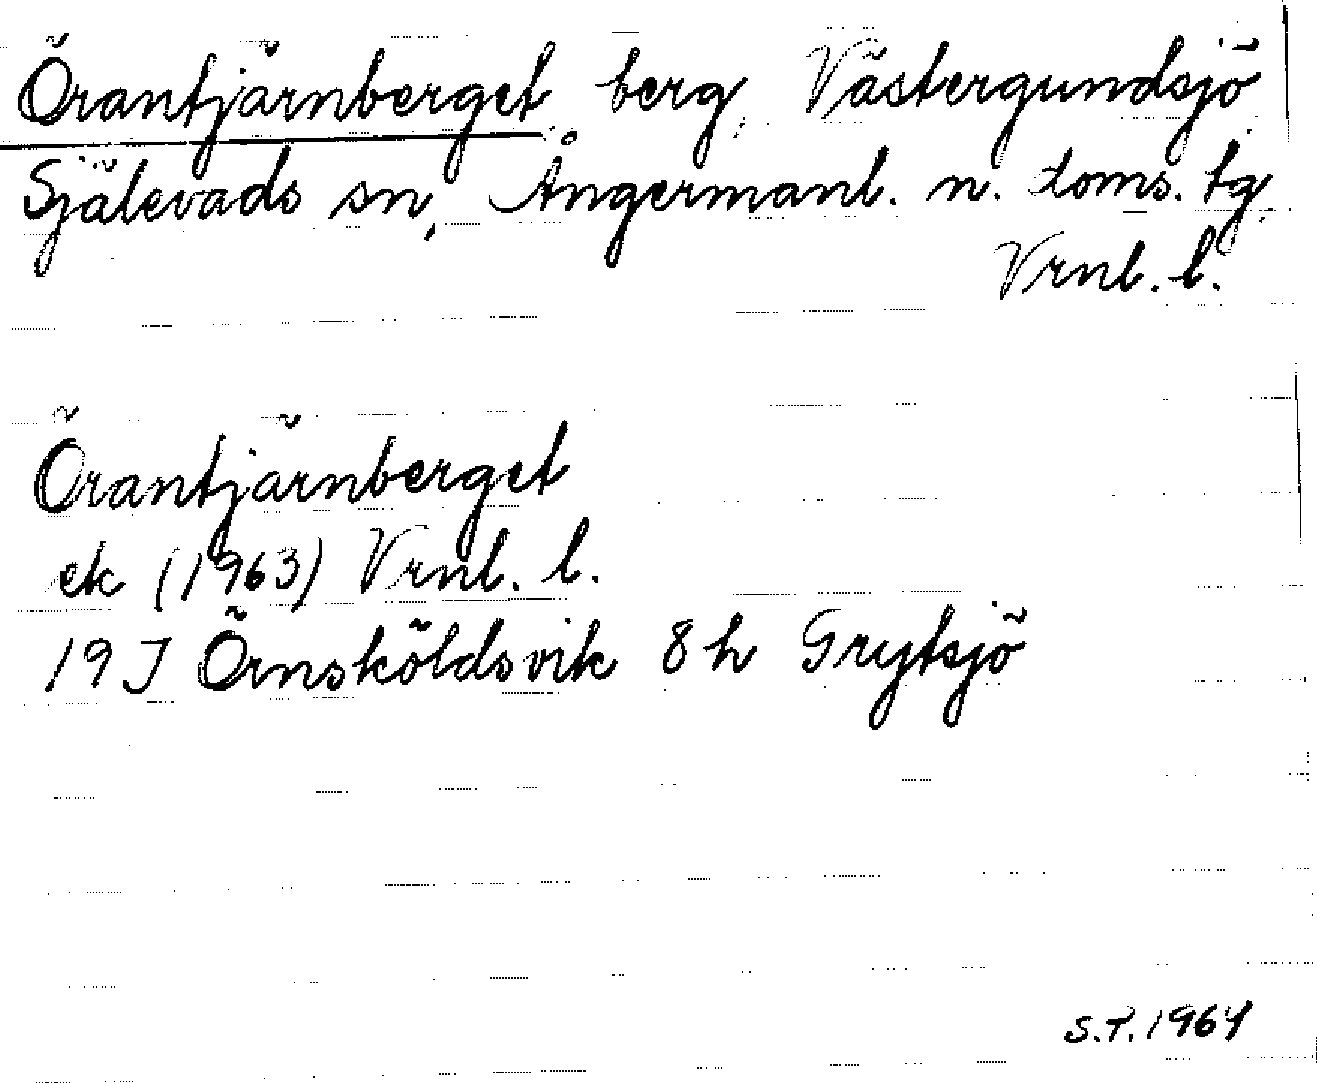 Örantjärnberget berg, Västergundsjö
Själevads sn, Ångermanl. n. doms. tg.
Vrnl. l.
Örantjärnberget
ek (1963) Vrnl. l.
19 J Örnsköldsvik 8 h Grytsjö
S.T. 1964